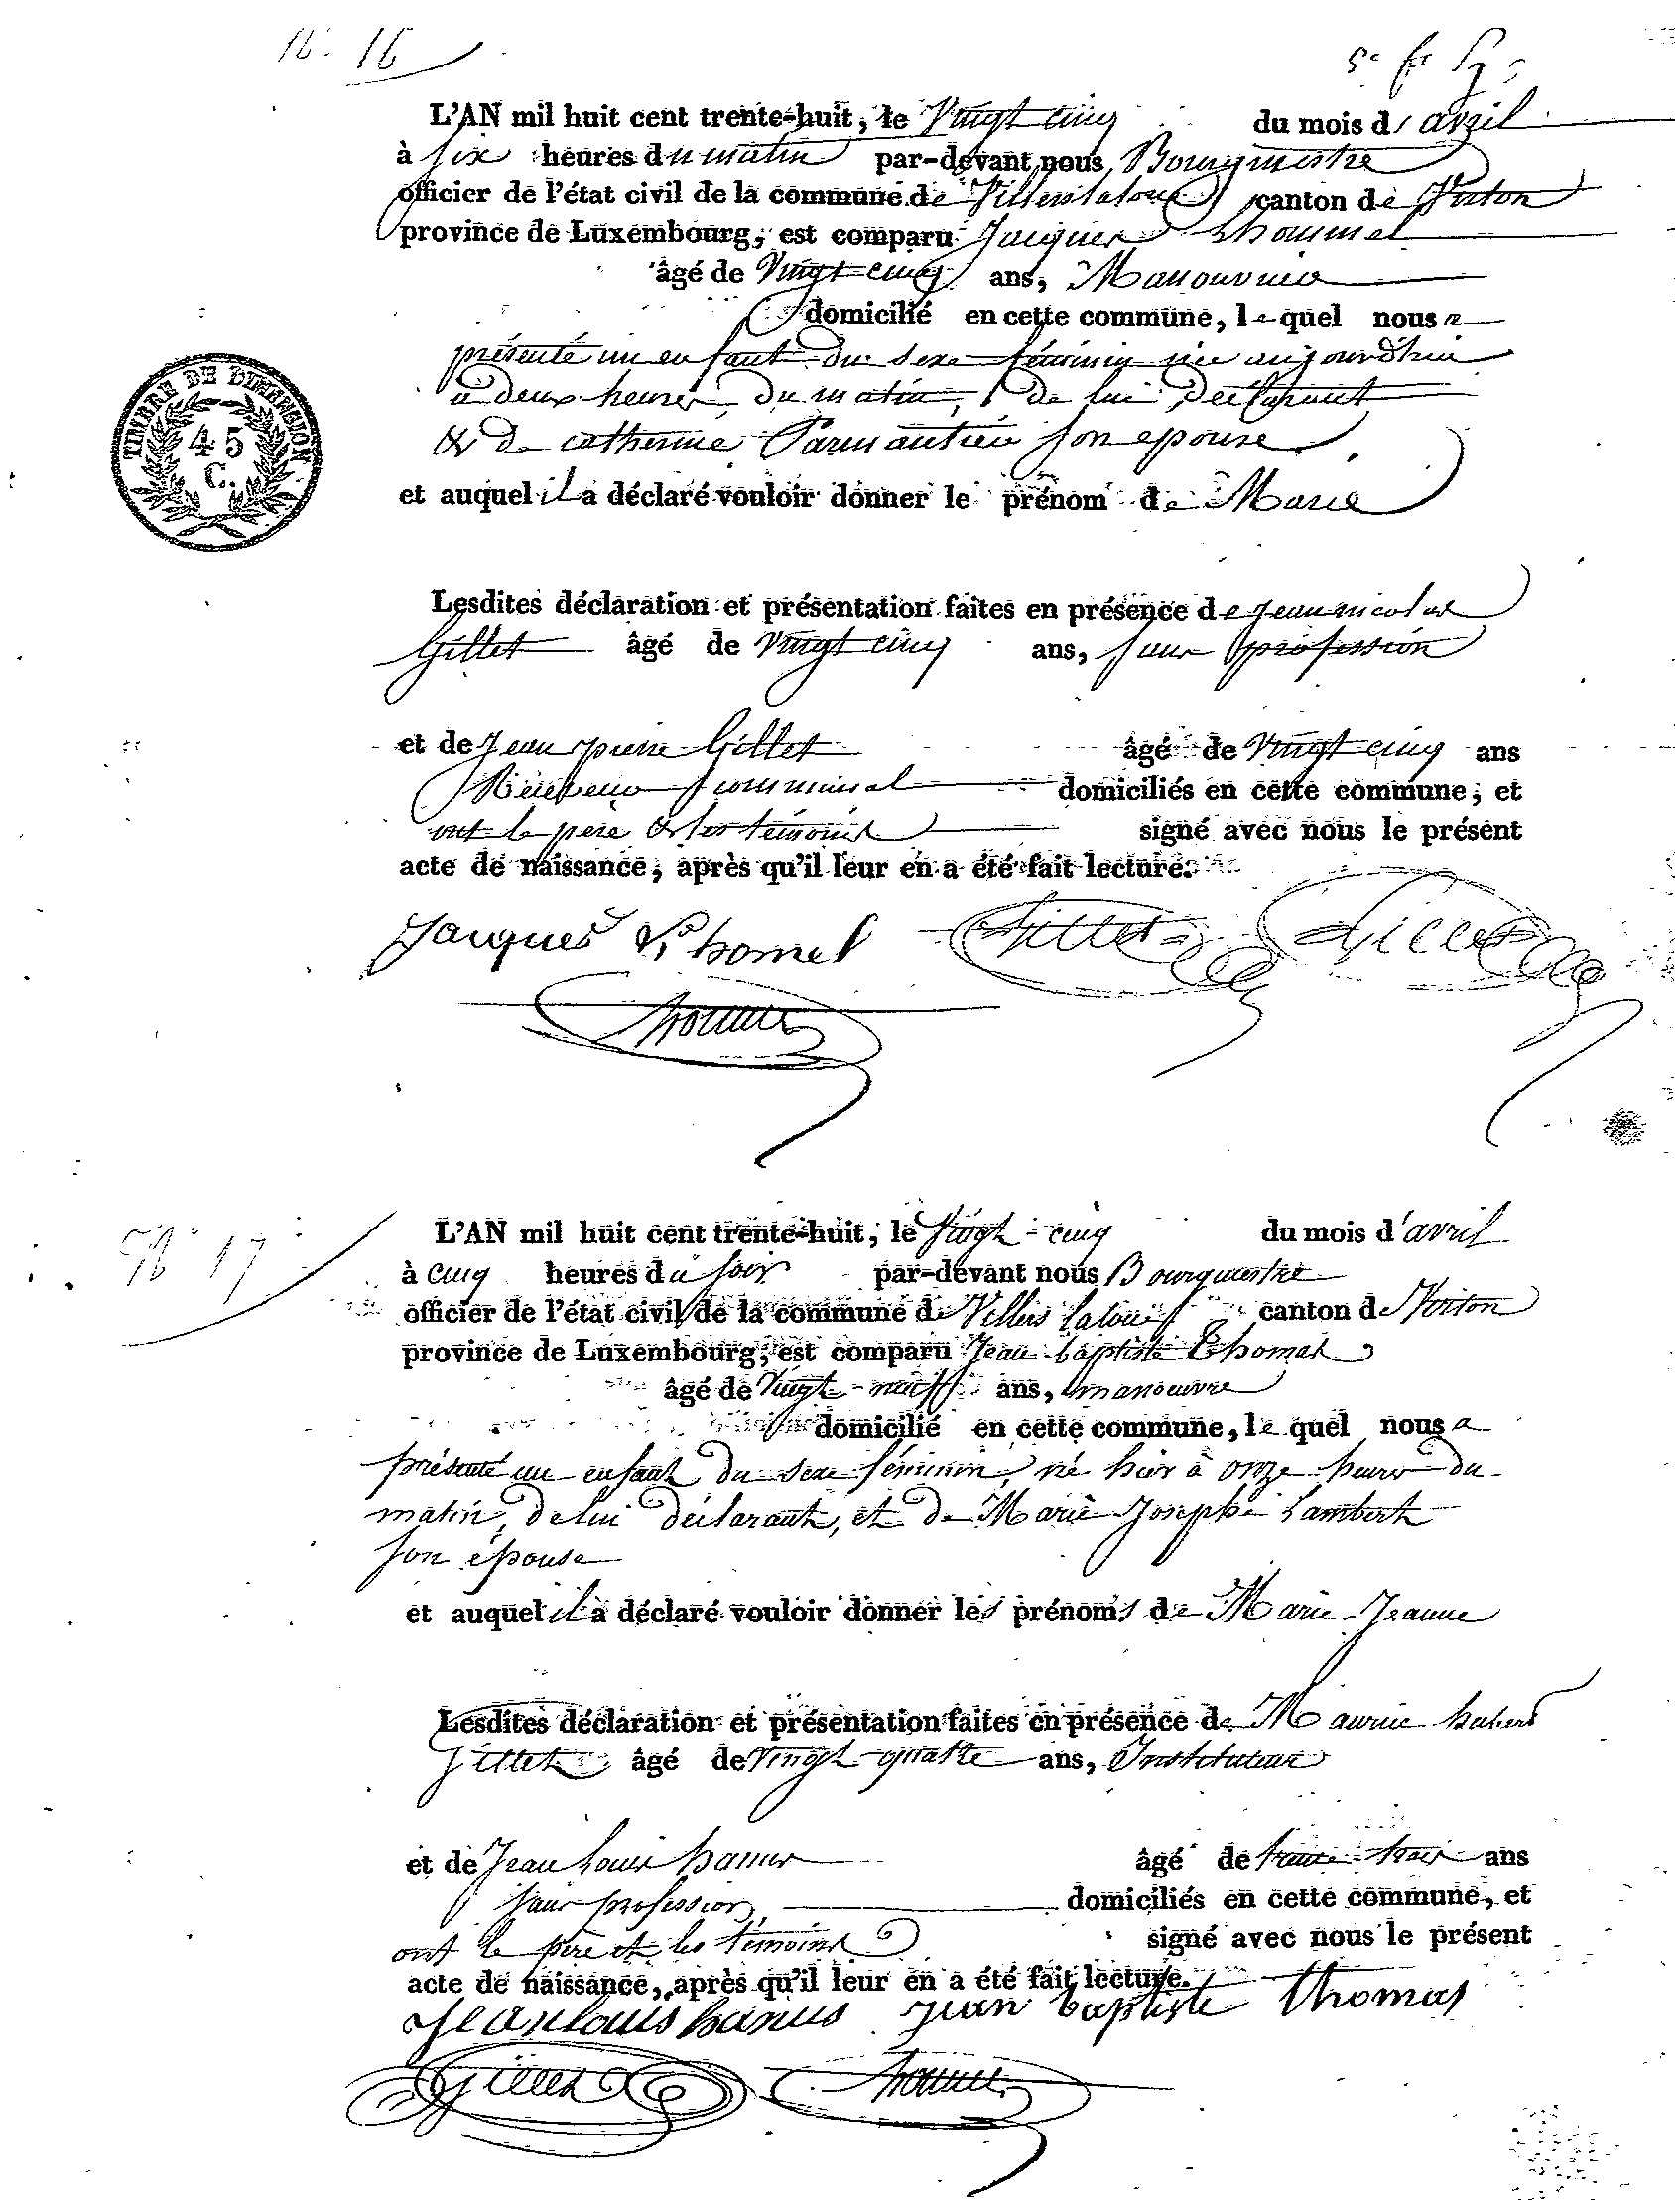 N° 16
L'AN mil huit cent trente-huit, le Vingt cinq du mois d'avril
à six heures du matin par-devant nous Bourgmestre
officier de l'état civil de la commune de Villerslaloue canton de Virton
province de Luxembourg, est comparu Jacques Lhommel
âgé de Vingt cinq ans, Manouvrier
domicilié en cette commune, le quel nous a
présenté un enfant du sexe féminin née aujourd'hui
à deux heures du matin, de lui déclarant
& de catherine Parmantier son epouse
et auquel il a déclaré vouloir donner le prénom de Marie
TIMBRE DE DIMENSION
45
C.
Lesdites déclaration et présentation faites en présence de Jean nicolas
Gillet âgé de Vingt cinq ans, sans profession
et de Jean pierre Gillet âgé de Vingt cinq ans
Receveur communal domiciliés en cette commune; et
ont le pere & les témoins signé avec nous le présent
acte de naissance, après qu'il leur en a été fait lecture.
Jacques Lhomel Gillet Gillet
N° 17
L'AN mil huit cent trente-huit, le Vingt-cinq du mois d'avril
à cinq heures du soir par-devant nous Bourgmestre
officier de l'état civil de la commune de Villers laloue canton de Virton
province de Luxembourg, est comparu Jean baptiste Thomas
âgé de Vingt-neuf ans, manoeuvre
domicilié en cette commune, le quel nous a
présenté un enfant du sexe féminin, né hier à onze heures du
matin, de lui déclarant, et de Marie Josephe Lambert
son épouse
et auquel il a déclaré vouloir donner les prénoms de Marie-Jeanne
Lesdites déclaration et présentation faites en présence de Maurice hubert
Gillet âgé de Vingt-quatre ans, Instituteur
et de Jean Louis hanus âgé de trente trois ans
sans profession domiciliés en cette commune, et
ont le père et les témoins signé avec nous le présent
acte de naissance, après qu'il leur en a été fait lecture.
Jean louis hanus Jean baptiste thomas
Gillet